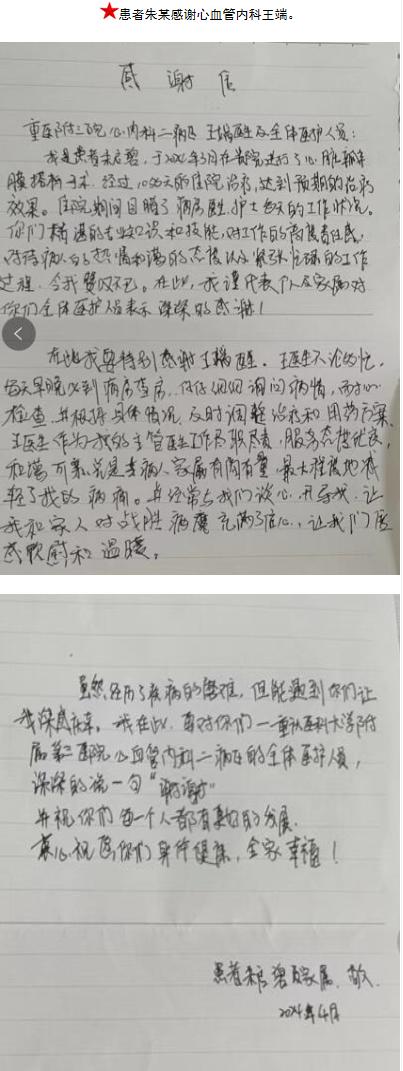 ★患者朱某感谢心血管内科王端。
感谢信
重医附二院心内科二病区 王端医生及全体医护人员：
我是患者朱启碧，于2024年3月在贵院进行了心脏瓣
膜搭桥手术，经过10多天的住院治疗，达到预期的治疗
效果。住院期间目睹了病房医生、护士每天的工作状况。
你们精湛的专业知识和技能，对工作的高度责任感，
对待病人的热情和蔼的态度以及紧张忙碌的工作
过程，令我赞叹不已。在此，我谨代表个人及家属对
你们全体医护人员表示深深的感谢！
在此我要特别感谢王端医生。王医生不论多忙，
每天早晚必到病房查房，仔仔细细询问病情，耐心
检查，并根据具体情况，及时调整治疗和用药方案。
王医生作为我的主管医生工作尽职尽责，服务态度优良，
和蔼可亲，总是与病人家属有商有量，最大程度地减
轻了我的病痛。并经常与我们谈心，开导我，让
我和家人对战胜病魔充满了信心，让我们倍
感欣慰和温暖。
虽然经历了疾病的磨难，但能遇到你们让
我深感庆幸。我在此，要对你们一重庆医科大学附
属第二医院心血管内科二病区的全体医护人员，
深深的说一句“谢谢”
并祝你们每一个人都有美好的发展.
衷心祝愿你们身体健康，全家幸福！
患者朱启碧及家属. 敬.
2024年4月